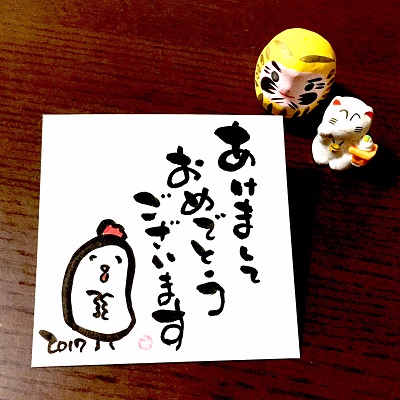 あけまして
おめでとう
ございます
2017